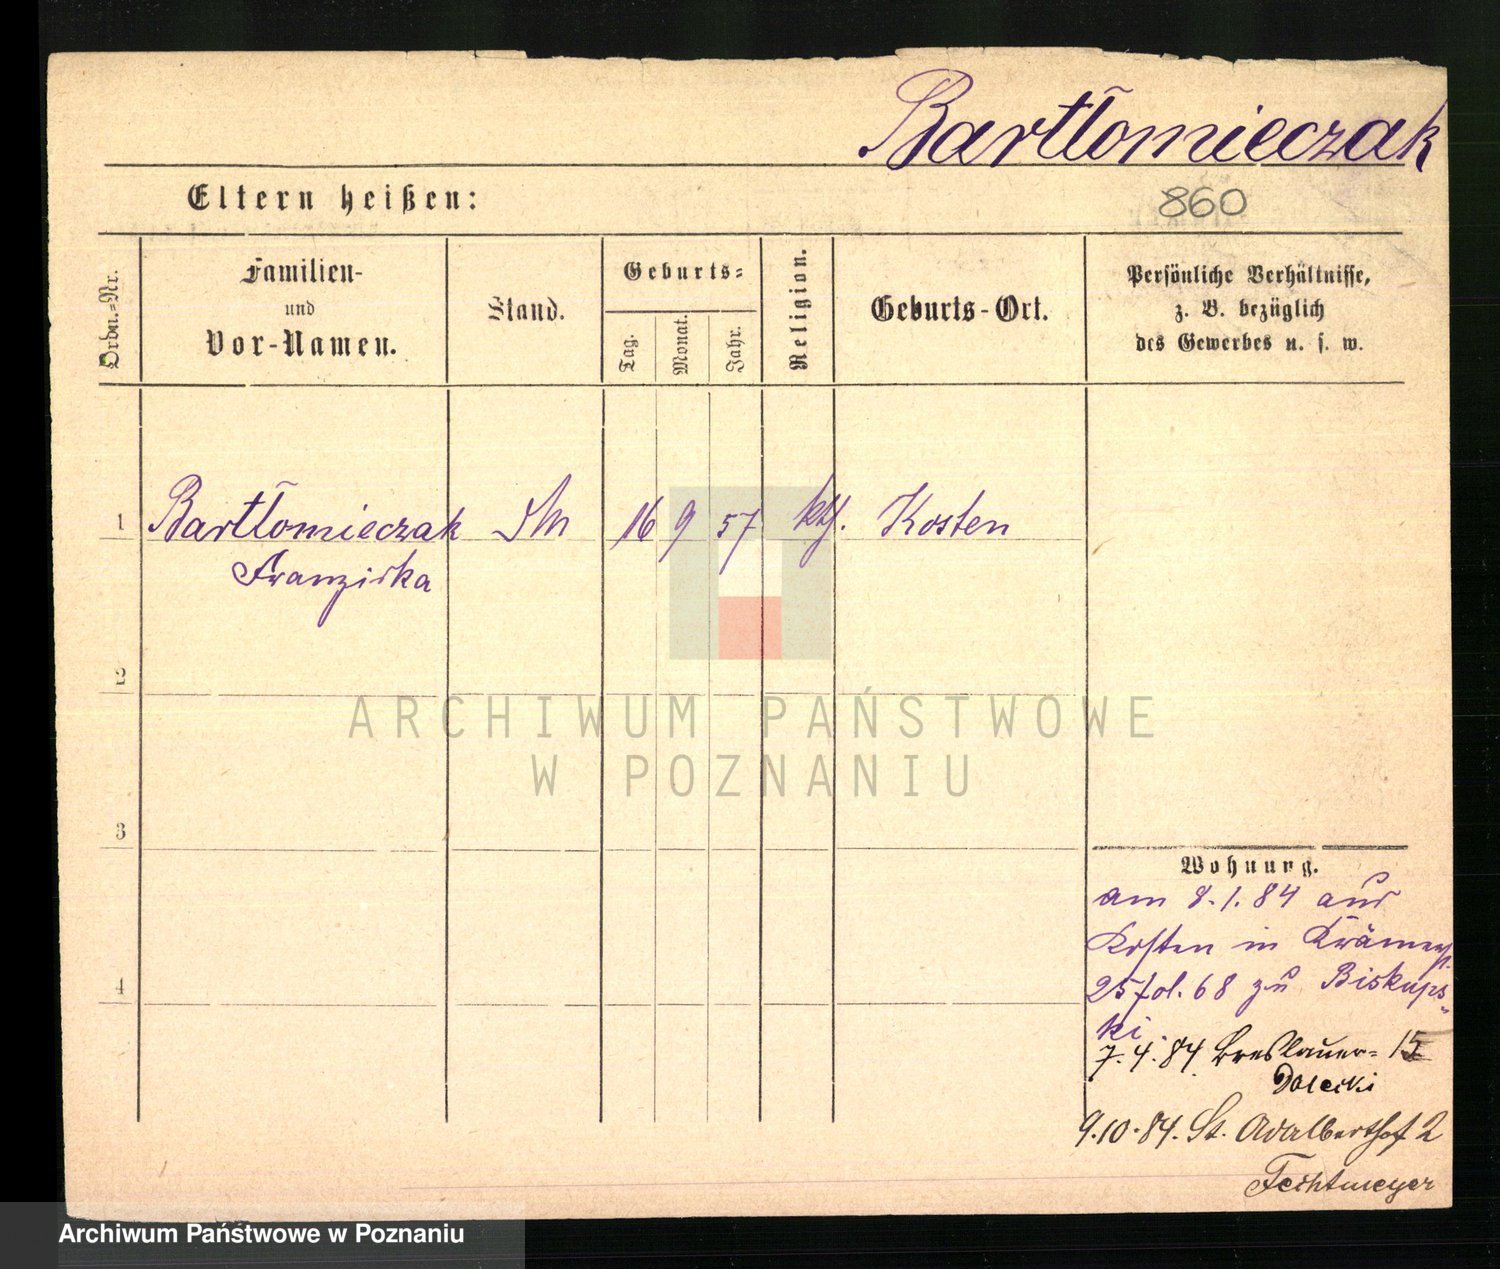 Bartłomieczak
Eltern heißen:
860
Ordn.-Nr.
Familien-
und
Vor-Namen.
Stand.
Geburts-
Tag.
Monat.
Jahr.
Religion.
Geburts-Ort.
Persönliche Verhältnisse,
z. B. bezüglich
des Gewerbes u. s. w.
1 Bartłomieczak 16 9 57 kth. Kosten
Franziska
2
3
4
Wohnung.
am 8.1.84 aus
Kosten in Krämerst.
25 fol. 68 zu Biskups-
ki.
7.4.84 Breslauer- 15
Dolecki
9.10.84. St. Adalberthof 2
Fechtmeyer
ARCHIWUM PAŃSTWOWE
W POZNANIU
Archiwum Państwowe w Poznaniu